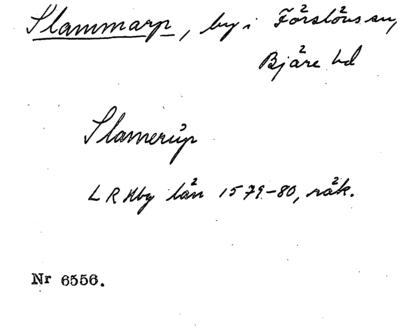 Slammarp, by i Förslövs sn,
Bjäre hd
Slamerup
L R Hbg län 1579-80, räk.
Nr 6556.